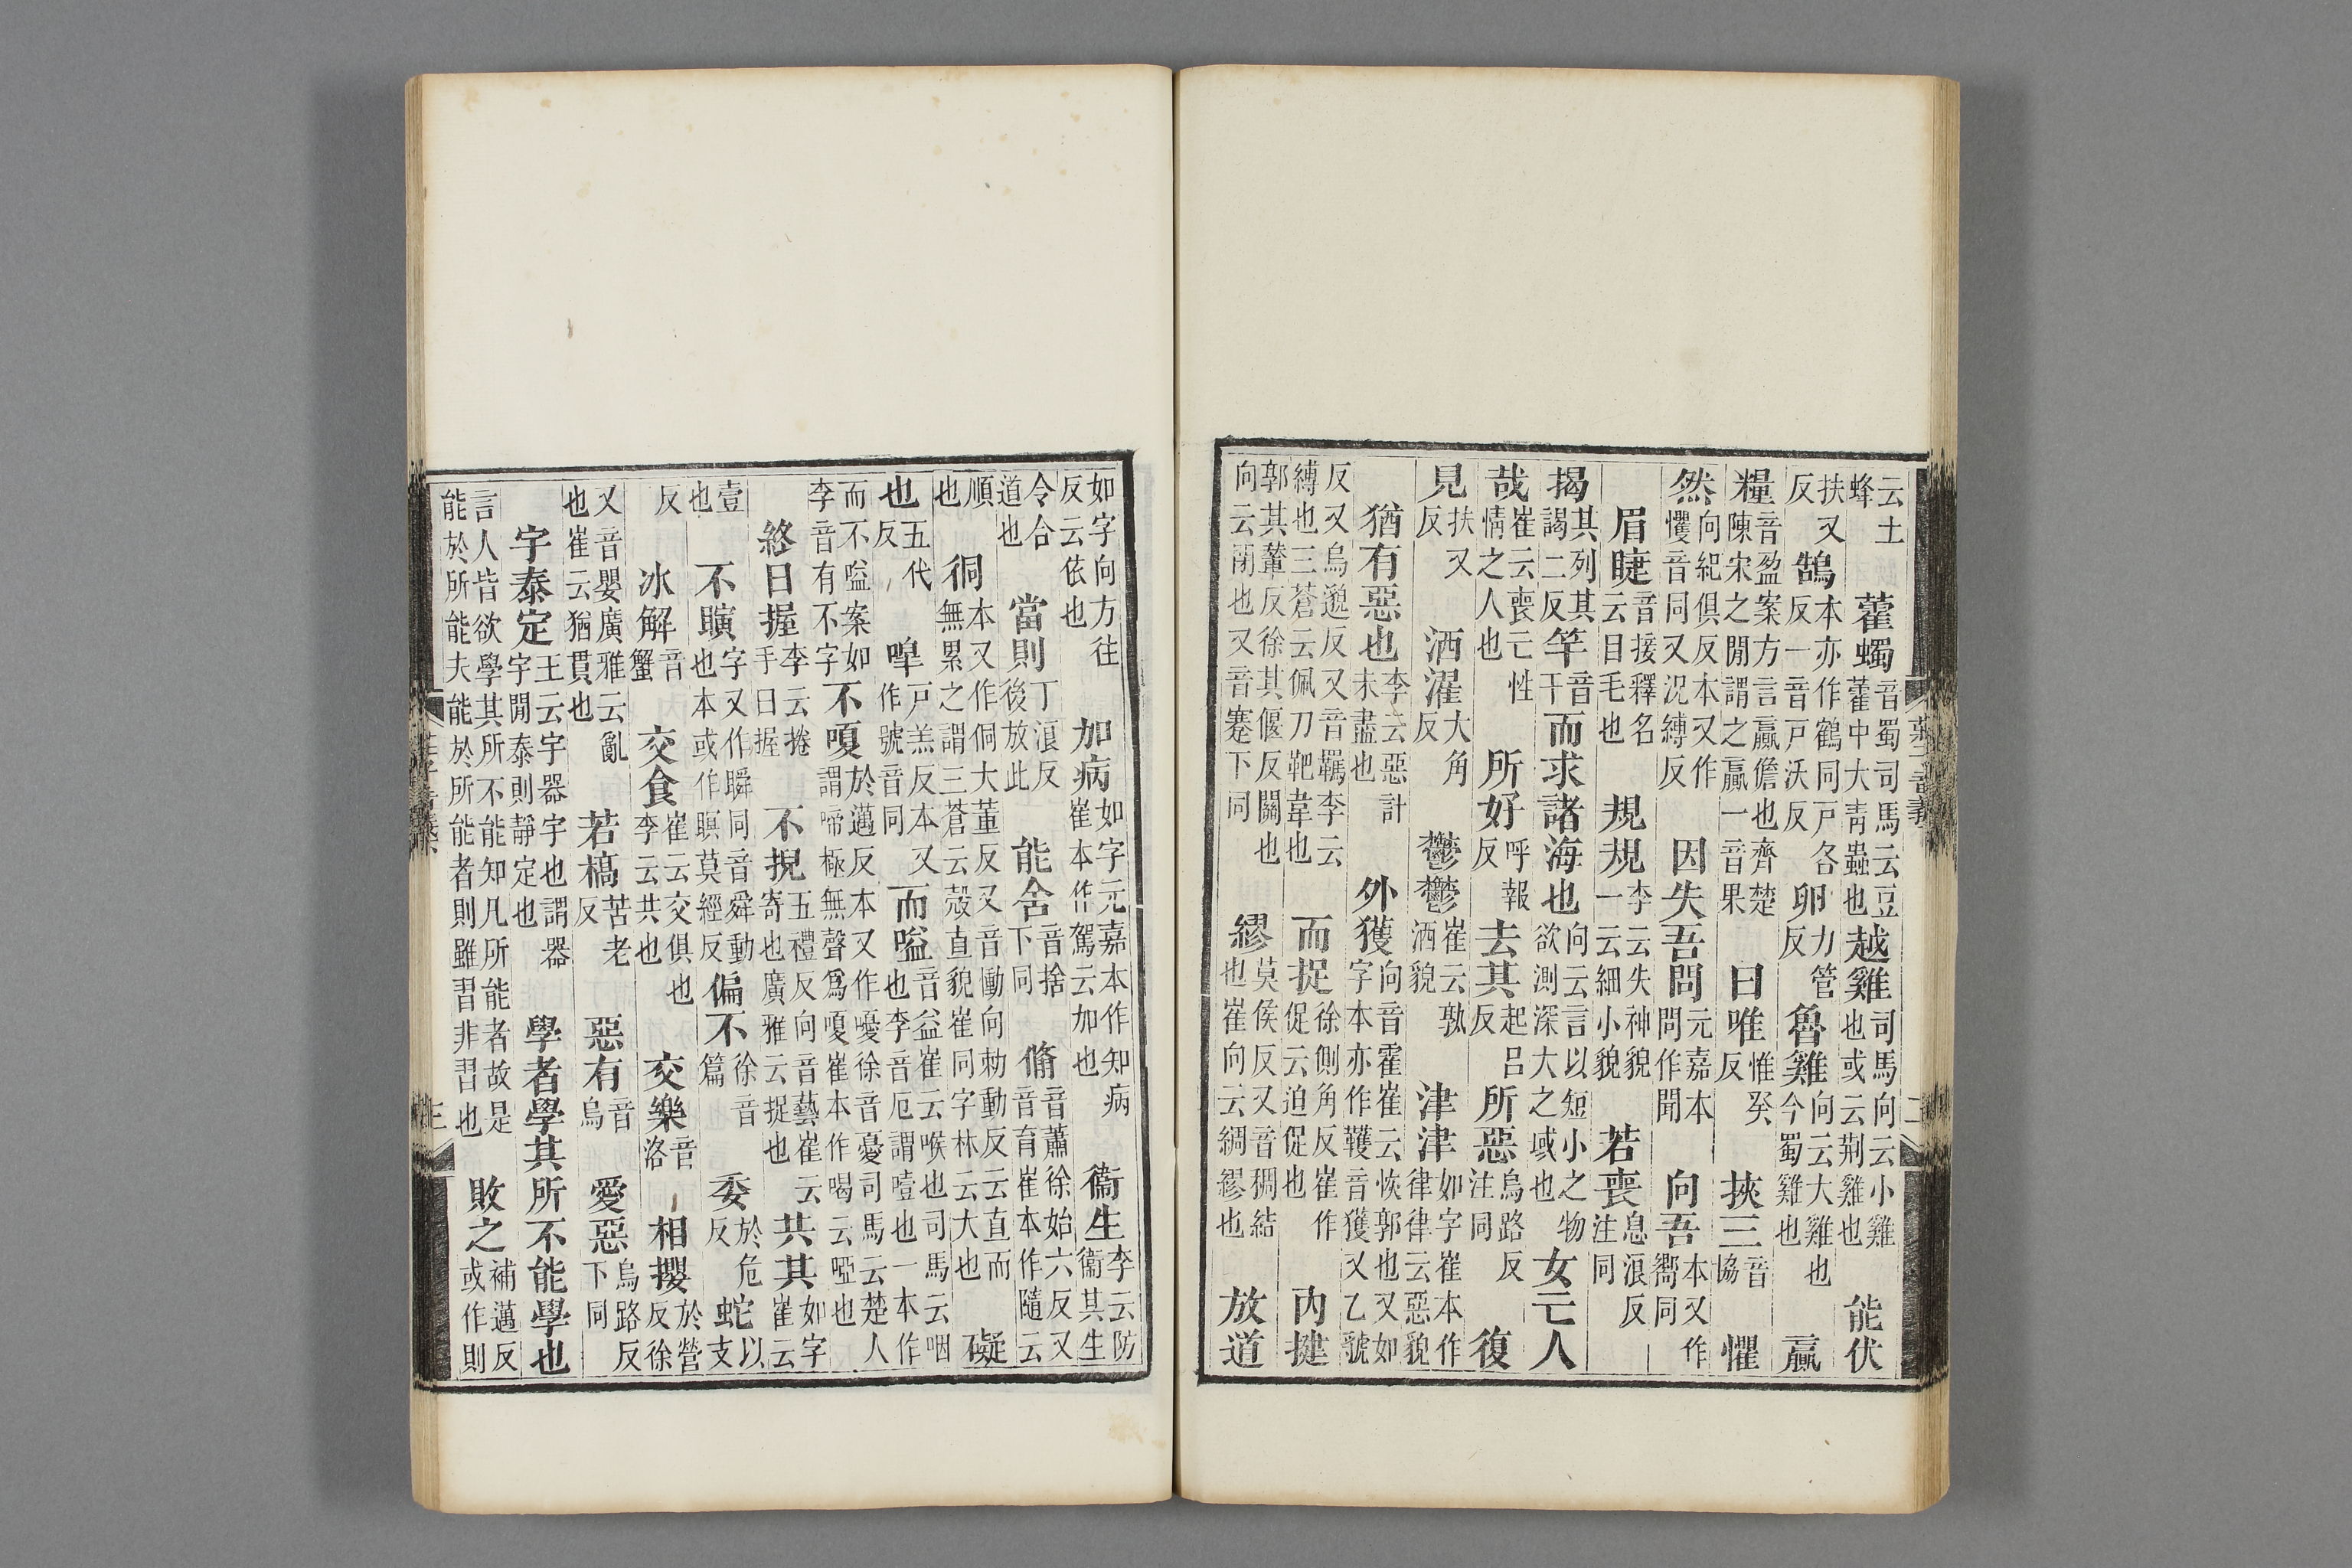 云土蜂藿蠋音蜀司馬云豆藿中大青蟲也越雞司馬向云小雞也或云荆雞也能伏
扶又反鵠本亦作鶴同戶各反一音戶沃反卵力管反魯雞向云大雞也今蜀雞也贏
糧音盈案方言贏儋也齊楚陳宋之閒謂之贏一音果曰唯惟癸反挾三音協懼
然向紀俱反本又作戄音同又況縛反因失吾問元嘉本問作聞向吾本又作嚮同
眉睫音接釋名云目毛也規規李云失神貌一云細小貌若喪息浪反注同
揭其列其謁二反竿音干而求諸海也向云言以短小之物欲測深大之域也女亡人
哉崔云喪亡性情之人也所好呼報反去其起呂反所惡烏路反注同復
見扶又反洒濯大角反鬱鬱崔云孰洒貌津津如字崔本作律律云惡貌
猶有惡也李云惡計未盡也外獲向音霍崔云恢郭也又如字本亦作韄音獲又乙虢
反又烏邈反又音羈李云縛也三蒼云佩刀靶韋也而捉徐側角反崔作促云迫促也内揵
郭其輦反徐其偃反關也向云閉也又音蹇下同繆莫侯反又音稠結也崔向云綢繆也放道
莊子音義
二
如字向方往反云依也加病如字元嘉本作知病崔本作駕云加也衞生李云防衞其生
令合道也當則丁浪反後放此能舍音捨下同翛音蕭徐始六反又音育崔本作隨云
順也侗本又作侗大董反又音慟向勑動反云直而無累之謂三蒼云㲉直貌崔同字林云大也礙
也五代反嗥戶羔反本又作號音同而嗌音益崔云喉也司馬云咽也李音厄謂噎也一本作
而不嗌案如李音有不字不嗄於邁反本又作嚘徐音憂司馬云楚人謂啼極無聲爲嗄崔本作喝云啞也
終日握李云捲手曰握不掜五禮反向音藝崔云寄也廣雅云捉也共其如字崔云
壹也不瞚字又作瞬同音舜動也本或作瞑莫經反偏不徐音篇委於危反蛇以支
反冰解音蟹交食崔云交俱也李云共也交樂音洛相攖於營反徐
又音嬰廣雅云亂也崔云猶貫也若槁苦老反惡有音烏愛惡烏路反下同
宇泰定王云宇器宇也謂器宇閒泰則靜定也學者學其所不能學也
言人皆欲學其所不能知凡所能者故是能於所能夫能於所能者則雖習非習也敗之補邁反或作則
三